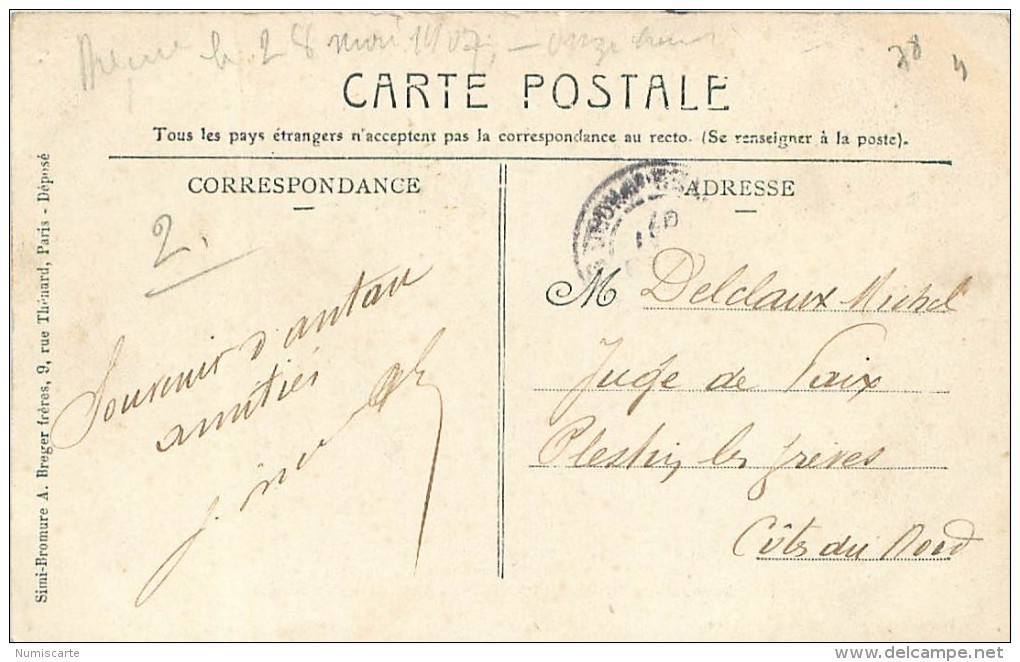 le 28 mai 1907, - onze heures
28
4
CARTE POSTALE
Tous les pays étrangers n'acceptent pas la correspondance au recto. (Se renseigner à la poste).
CORRESPONDANCE
2.
Souvenir d'antan
amitiés
ADRESSE
M Delclaux Michel
Juge de Paix
Plestin les grèves
Côtes du Nord
Simi-Bromure A. Breger frères, 9, rue Thénard, Paris - Déposé
Numiscarte
www.delcampe.net